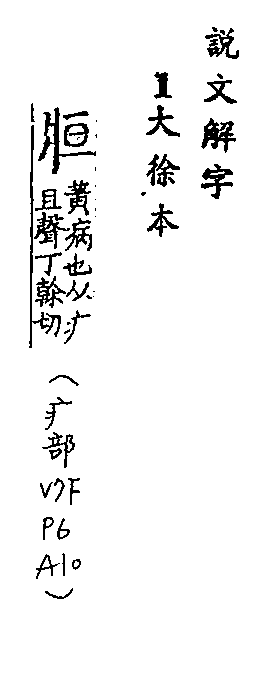 説文解字
1大徐本
疸
黃病也从疒
旦聲丁榦切
(疒部V7FP6A10)